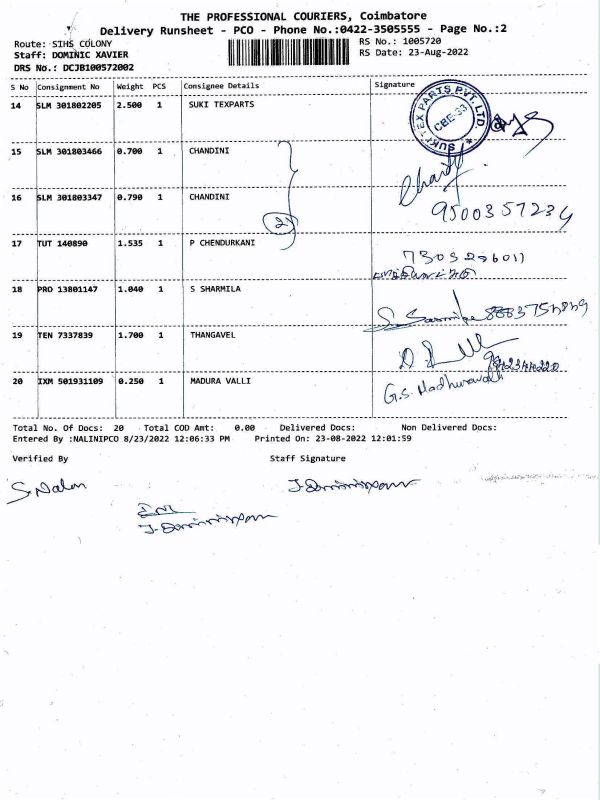 THE PROFESSIONAL COURIERS, Coimbatore
Delivery Runsheet - PCO - Phone No.:0422-3505555 - Page No.:2
Route: SIHS COLONY
RS No.: 1005720
Staff: DOMINIC XAVIER
RS Date: 23-Aug-2022
DRS No.: DCJB100572002
S No Consignment No Weight PCS Consignee Details Signature
14 SLM 301802205 2.500 1 SUKI TEXPARTS
SUKI TEX PARTS PVT. LTD. CBE-33
15 SLM 301803466 0.700 1 CHANDINI
16 SLM 301803347 0.790 1 CHANDINI
2
9500357234
17 TUT 140890 1.535 1 P CHENDURKANI
18 PRO 13801147 1.040 1 S SHARMILA
19 TEN 7337839 1.700 1 THANGAVEL
20 IXM 501931109 0.250 1 MADURA VALLI
G.S. Madhuravalli
Total No. Of Docs: 20 Total COD Amt: 0.00 Delivered Docs: Non Delivered Docs:
Entered By :NALINIPCO 8/23/2022 12:06:33 PM Printed On: 23-08-2022 12:01:59
Verified By Staff Signature